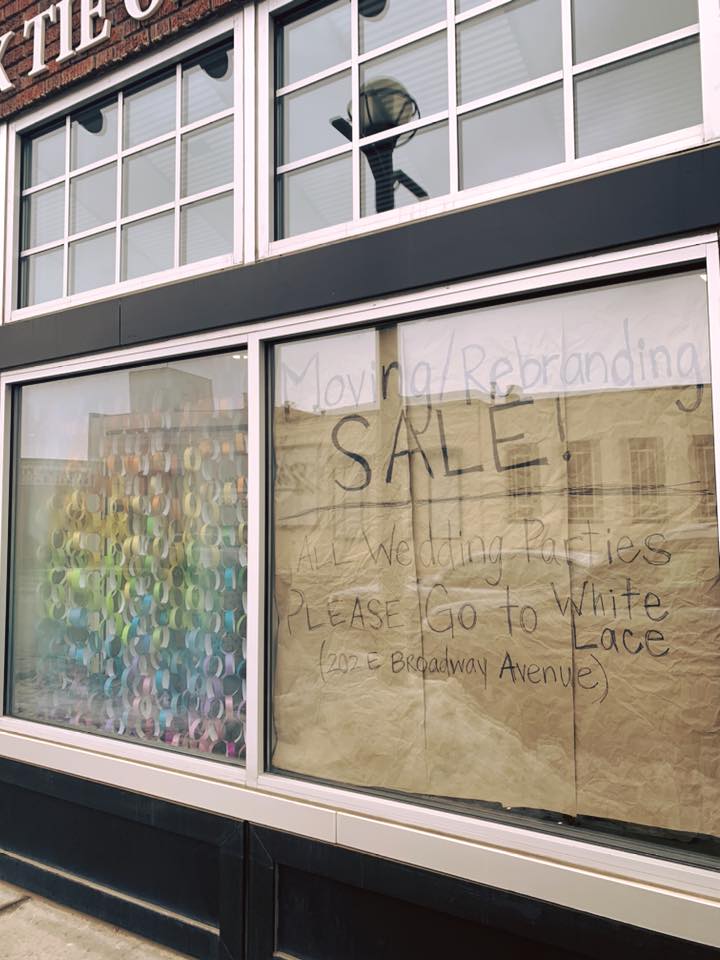 TIE
Moving/Rebranding
SALE!
ALL Wedding Parties
PLEASE Go to White
Lace
(202 E Broadway Avenue)